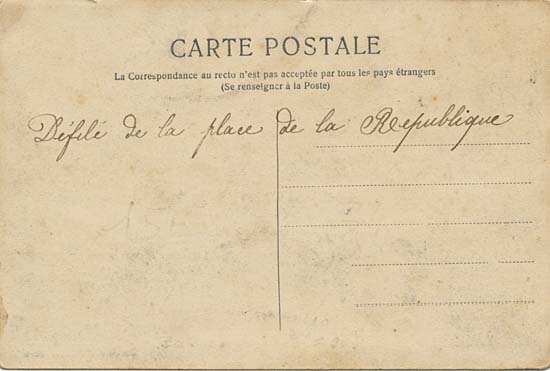 CARTE POSTALE
La Correspondance au recto n'est pas acceptée par tous les pays étrangers
(Se renseigner à la Poste)
Défilé de la place de la République